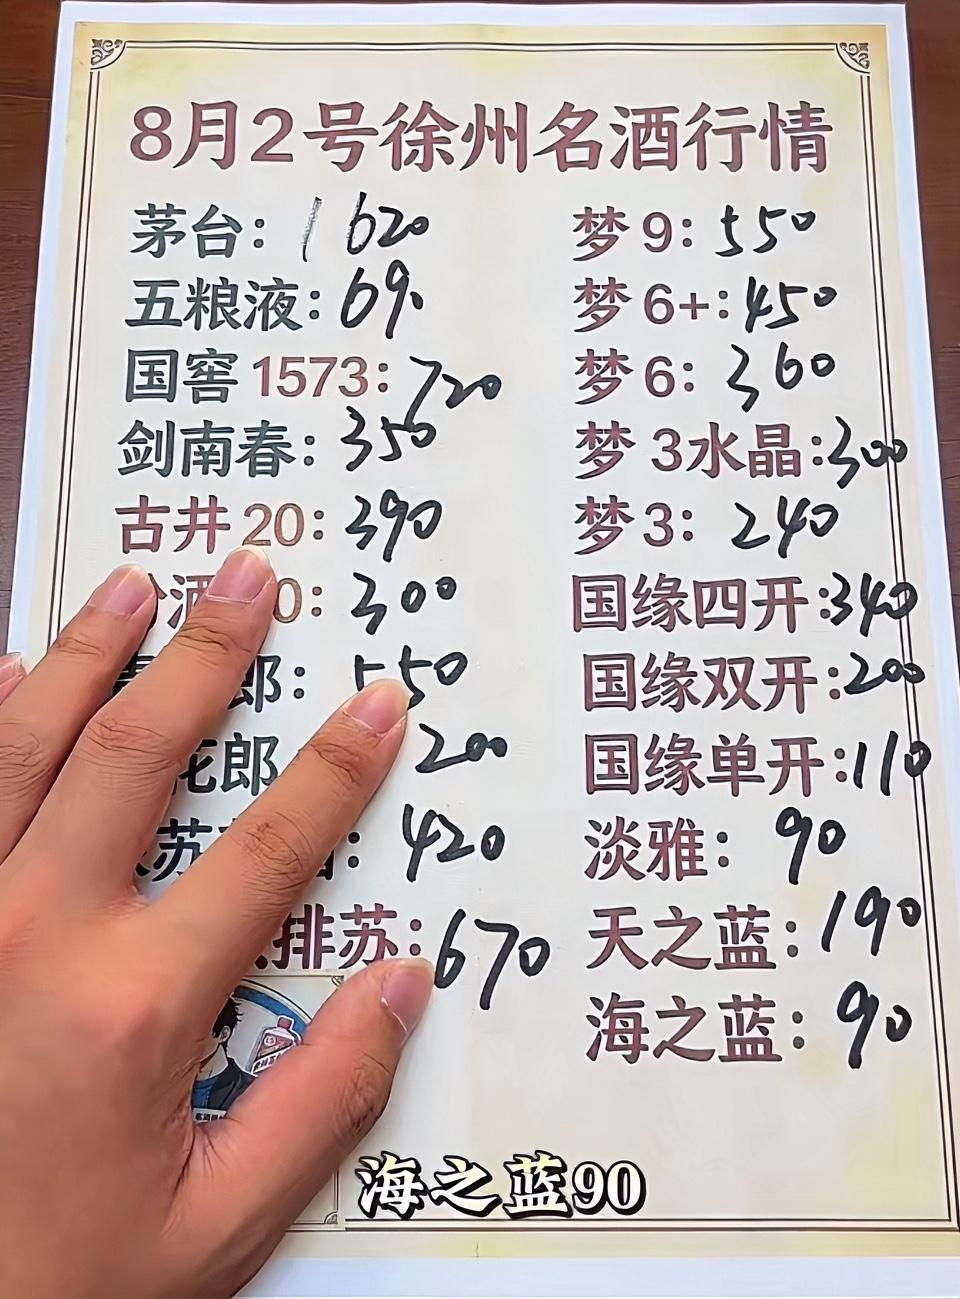 8月2号徐州名酒行情
茅台：1620
五粮液：69
国窖1573：720
剑南春：350
古井20：390
酒 0：300
郎：550
花郎 200
苏 ：420
排苏：670
梦9：550
梦6+：450
梦6：360
梦3水晶：300
梦3：240
国缘四开：340
国缘双开：200
国缘单开：110
淡雅：90
天之蓝：190
海之蓝：90
海之蓝90